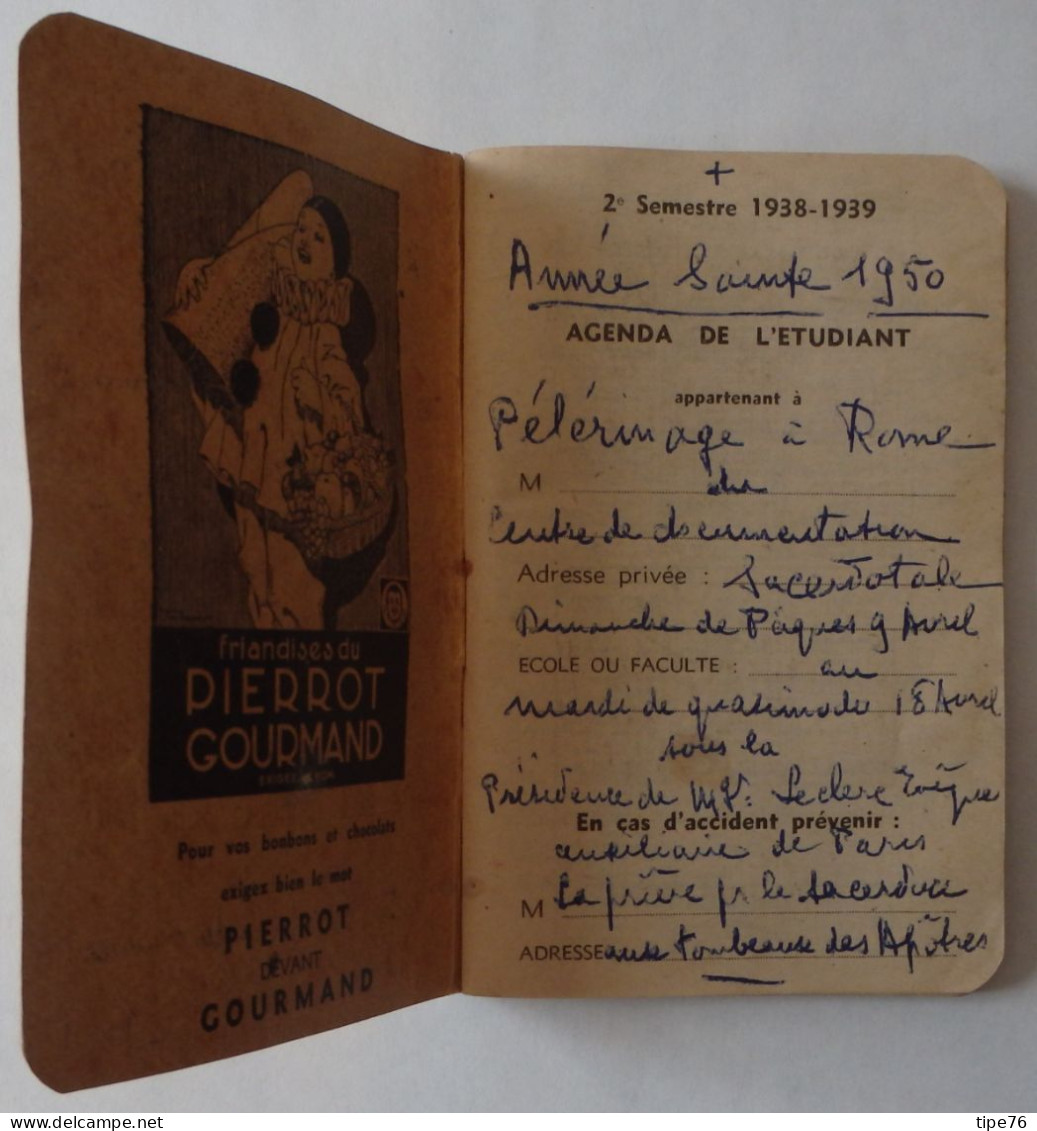 friandises du
PIERROT
GOURMAND
Pour vos bonbons et chocolats
exigez bien le mot
PIERROT
DEVANT
GOURMAND
+
2e Semestre 1938-1939
Année Sainte 1950
AGENDA DE L'ETUDIANT
appartenant à
Pélérinage à Rome
M du
Centre de documentation
Adresse privée : Sacerdotale
Dimanche de Pâques 9 Avril
ECOLE OU FACULTE : au
mardi de quasimodo 18 Avril
sous la
Présidence de Mgr. Leclerc Evêque
En cas d'accident prévenir :
auxiliaire de Paris
M La prière pr le Sacerdoce
ADRESSE aux tombeaux des Apôtres
www.delcampe.net
tipe76